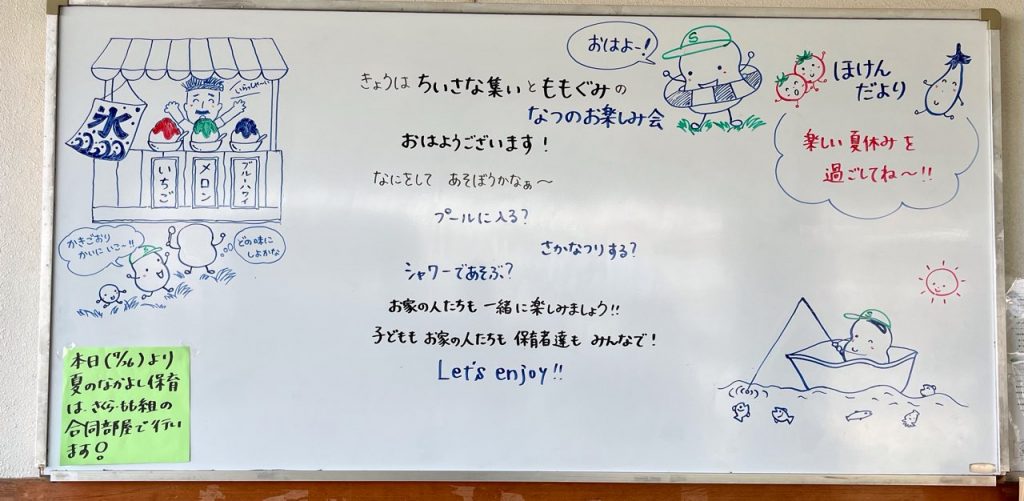 いらっしゃ〜い
氷
いちご
メロン
ブルーハワイ
かきごおり
かいに いこ〜!!
どの味に
しよかな
本日(7/26)より
夏のなかよし保育
は、さくら・もも組の
合同部屋で行い
ます!
きょうは ちいさな集い と ももぐみ の
なつのお楽しみ会
おはようございます!
なにをして あそぼうかなぁ〜
プールに入る?
さかなつりする?
シャワーであそぶ?
お家の人たちも 一緒に楽しみましょう!!
子どもも お家の人たちも 保育者達も みんなで!
Let's enjoy!!
おはよー!
S
ほけん
だより
楽しい夏休みを
過ごしてね〜!!
S